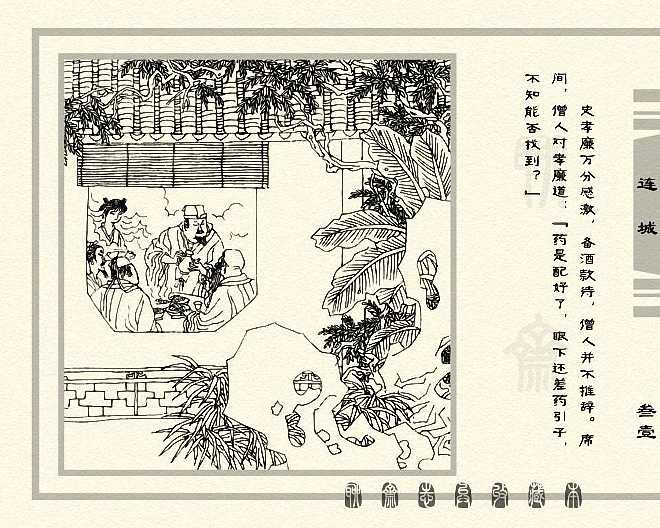 史孝廉万分感激，备酒款待，僧人并不推辞。席
间，僧人对孝廉道：「药是配好了，眼下还差药引子，
不知能否找到？」
连城
叁壹